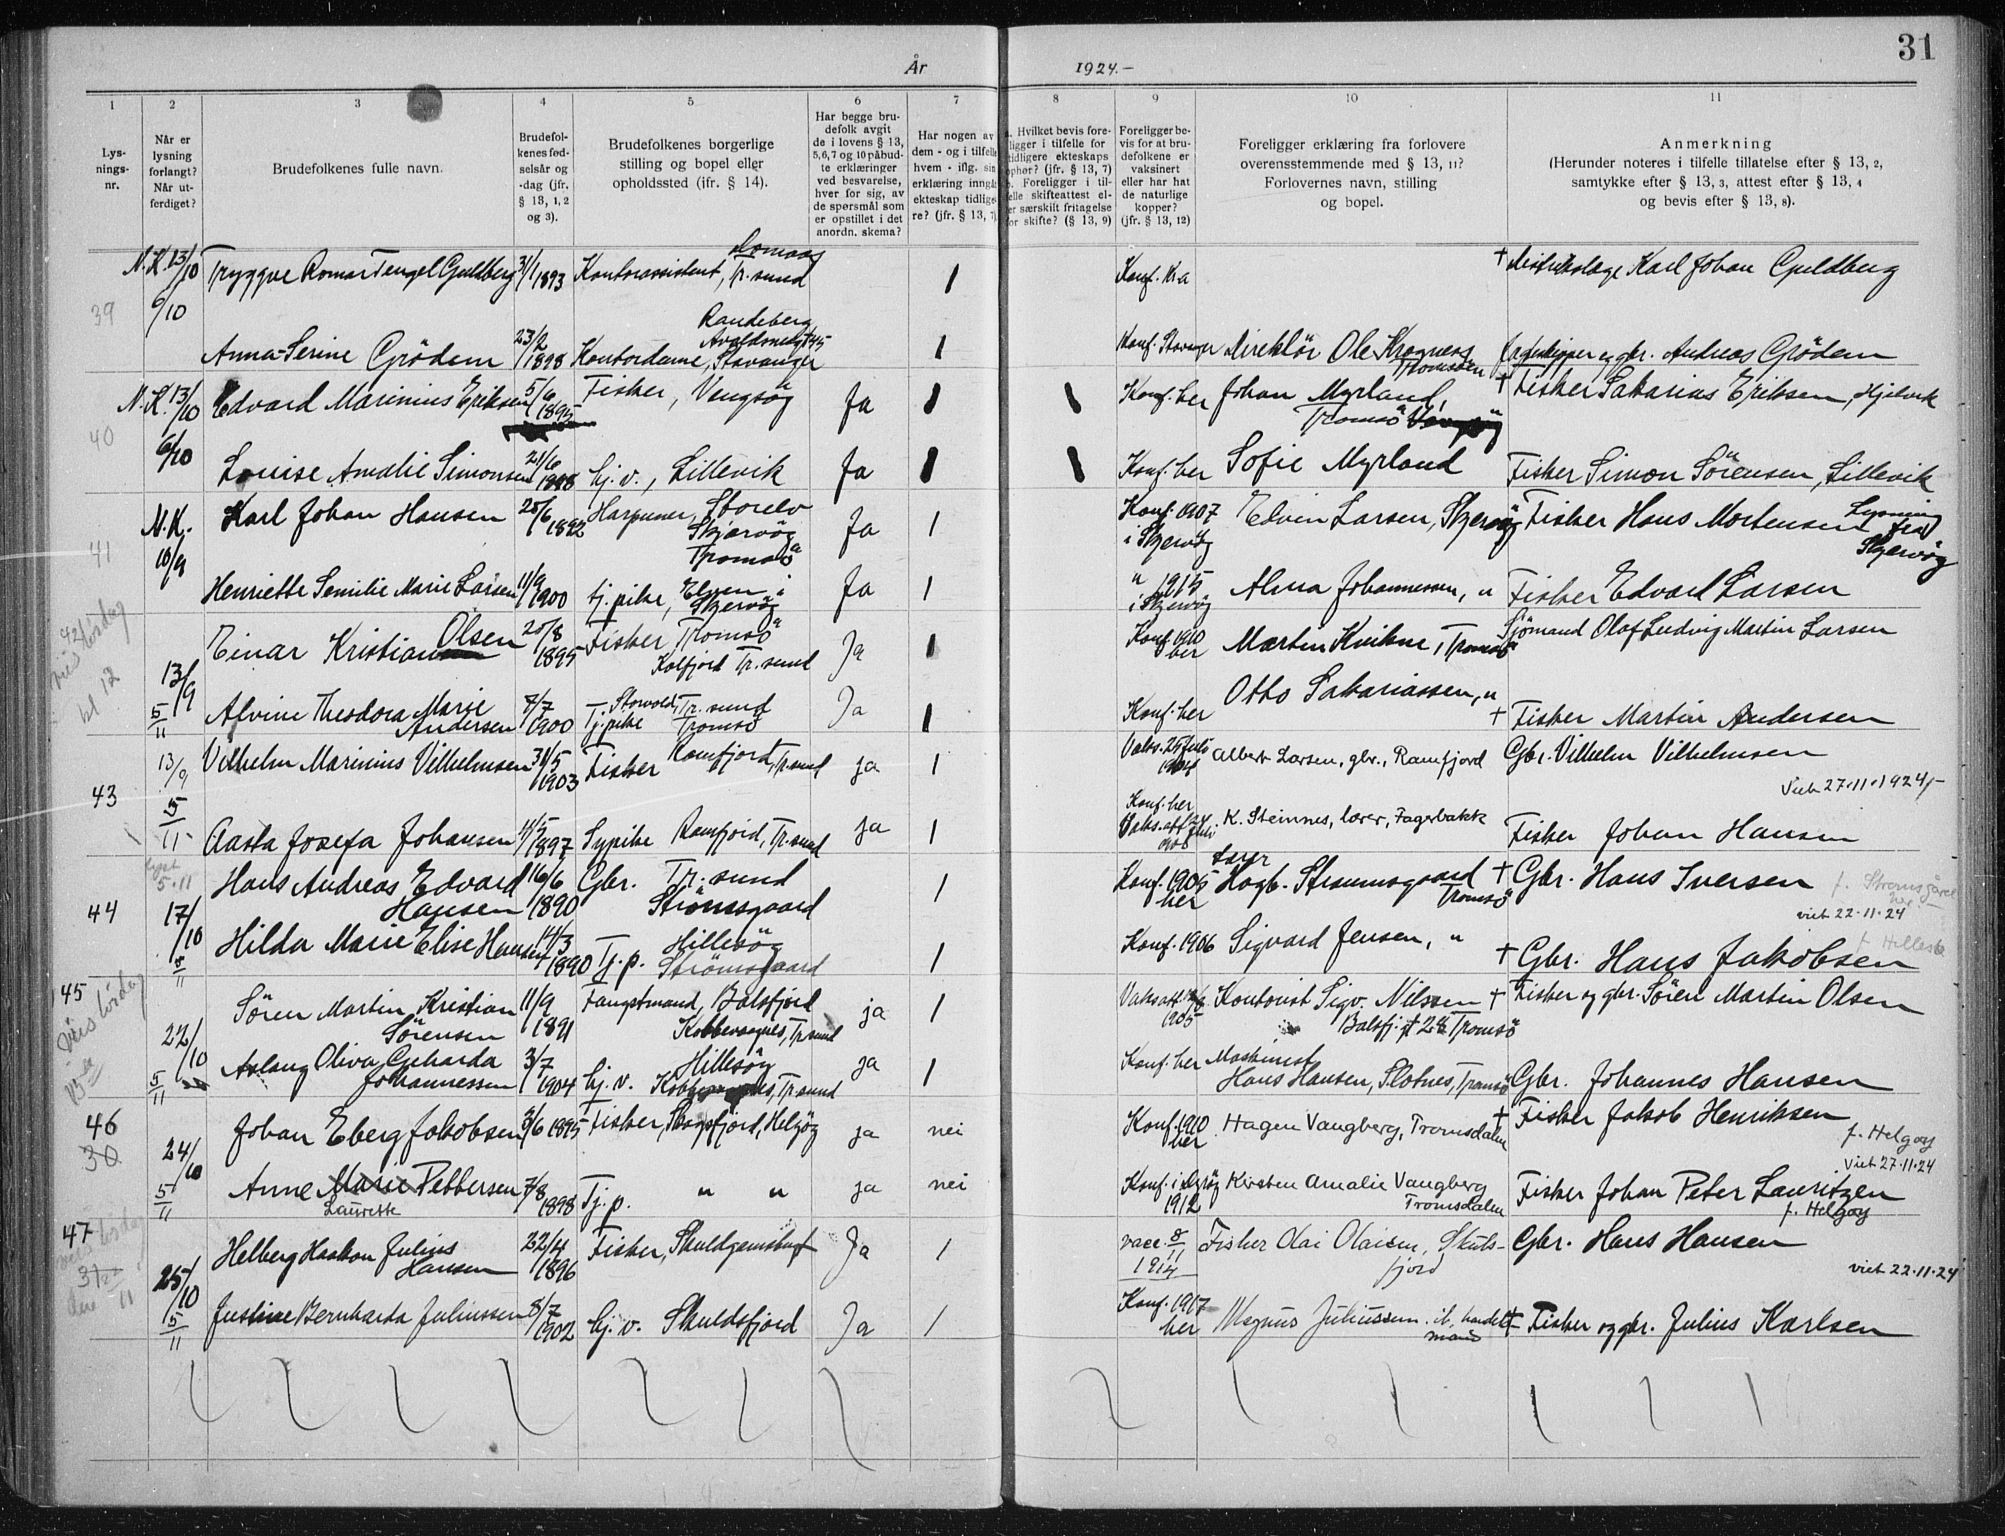 31
År 1924.-
1 2 3 4 5 6 7 8 9 10 11
Lys-
nings-
nr.
Når er
lysning
forlangt?
Når ut-
ferdiget?
Brudefolkenes fulle navn.
Brudefol-
kenes fød-
selsår og
-dag (jfr.
§ 13, 1, 2
og 3).
Brudefolkenes borgerlige
stilling og bopel eller
opholdssted (ifr. § 14).
Har begge bru-
defolk avgit
de i lovens § 13,
5,6,7 og 10 påbud-
te erklæringer
ved besvarelse,
hver for sig, av
de spørsmål som
er opstillet i det
anordn. skema?
Har nogen av
dem - og i tilfelle
hvem - iflg. sin
erklæring inngåt
ekteskap tidlige-
re? (jfr. § 13, 7)
Hvilket bevis fore-
ligger i tilfelle for
tidligere ekteskaps
ophør? (jfr. § 13, 7)
Foreligger i til-
felle skifteattest el-
ler særskilt fritagelse
for skifte? (§ 13, 9)
Foreligger be-
vis for at bru-
defolkene er
vaksinert
eller har hat
de naturlige
kopper?
(jfr. § 13, 12)
Foreligger erklæring fra forlovere
overensstemmende med § 13, 11?
Forlovernes navn, stilling
og bopel.
Anmerkning
(Herunder noteres i tilfelle tillatelse efter § 13, 2,
samtykke efter § 13, 3, attest efter § 13, 4
og bevis efter § 13, 8).
39 N.K. 13/10 Tryggve Romar Tengel Guldberg 31/1 1893 Kontorassistent, Tr.sund 1 Konf. Kra † Karl Johan Guldberg
6/10
Anna-Serine Grödem 23/2 1898 Kontordame, Stavanger 1 Konf. Stavanger Direktör Ole Krogness Tromsöen og gbr. Andreas Grödem
Randeberg
40 N.K. 13/10 Edvard Marinius Eriksen 5/6 1895 Fisker, Vengsög Ja 1 1 Konf. her Johan Myrland, Tromsö † Fisker Sakarias Eriksen, Hjelvik
6/10 Louise Amalie Simonsen 21/6 1888 hj.v., Lillevik Ja 1 1 Konf. her Sofie Myrland Fisker Simon Sörensen, Lillevik
41 N.K. 10/9 Karl Johan Hansen 25/6 1892 Harpuner, Storelv Skjærvög Tromsö Ja 1 Konf. 1907 i Skjervög Edvin Larsen, Skjervög Fisker Hans Mortensen Lysning fra Skjervög
Henriette Semilie Marie Larsen 11/9 1900 tj.pike, i Skjervög Ja 1 " 1915 i Skjervög Alma Johannessen, " Fisker Edvard Larsen
42 Vies lördag kl 12
13/9 Einar Kristian Olsen 20/8 1895 Fisker, Tromsö Kalfjord Tr.sund Ja 1 Konf. 1910 her Martin Kvikne, Tromsö Sjömand Olaf Ludvig Martin Larsen
5/11 Alvine Theodora Marie Andersen 7/7 1900 Tj.pike Storvold, Tr.sund Tromsö Ja 1 Konf. her Otto Sakariassen, " † Fisker Martin Andersen
43 13/9 Vilhelm Marinius Vilhelmsen 31/5 1903 Fisker Ramfjord, Tr.sund ja 1 Vaks. 25 juli 1904 Albert Larsen, gbr., Ramfjord Gbr. Vilhelm Vilhelmsen
Viet 27.11.1924,-
5/11 Aasta Josefa Johansen 14/5 1897 Sypike Ramfjord, Tr.sund ja 1 Konf. her Vaks. att 24 juli K. Steinnes, lærer, Fagerbakk Fisker Johan Hansen
44 lyst 5.11
17/10 Hans Andreas Edvard Hansen 16/6 1890 Gbr. Tr.sund Strömsgaard 1 Konf. 1905 her Lærer Hagb. Straumsgaard Tromsö † Gbr. Hans Iversen f. Strömsgård
viet 22.11.24
5/11 Hilda Marie Elise Hansen 14/3 1890 Tj.p. Hillesög Strömsgaard 1 Konf. 1906 Sigvard Jensen, " † Gbr. Hans Jakobsen f. Hillesö
45 Vies lördag
22/10 Sören Martin Kristian Sörensen 11/9 1891 Fangstmand, Balsfjord Kobbevagnes, Tr.sund ja 1 Vaksatt 1905 Kontorist Sigv. Nilssen Balsfj.gt 24 Tromsö † Fisker og gbr. Sören Martin Olsen
5/11 Aslaug Oliva Gerharda Johannessen 3/7 1904 hj.v. Hillesög Kobbevagnes, Tr.sund ja 1 Konf. her Maskinist Hans Hansen, Slotnes, Tromsö Gbr. Johannes Hansen
46 30
24/10 Johan Eberg Jakobsen 3/6 1895 Fisker, Skogsfjord, Helgög ja nei Konf. 1910 her Hagen Vangberg, Tromsdalen † Fisker Jakob Henriksen f. Helgøy
Viet 27.11.24
5/11 Anne Marie Pettersen Laurette 7/8 1898 Tj.p. " " ja nei Konf. i 1912 Kirsten Amalie Vangberg Tromsdalen Fisker Johan Peter Lauritzen f. Helgøy
47 31
25/10 Helberg Haakon Julius Hansen 22/4 1896 Fisker, Ja 1 vacc. 8/11 1914 Fisker Olai Olaisen, Skuls-fjord Gbr. Hans Hansen
viet 22.11.24
5/11 Justine Bernharda Juliussen 8/7 1902 hj.v. Skuldsfjord Ja 1 Konf. 1917 her Magnus Juliussen. handelsmand † Fisker og gbr. Julius Karlsen